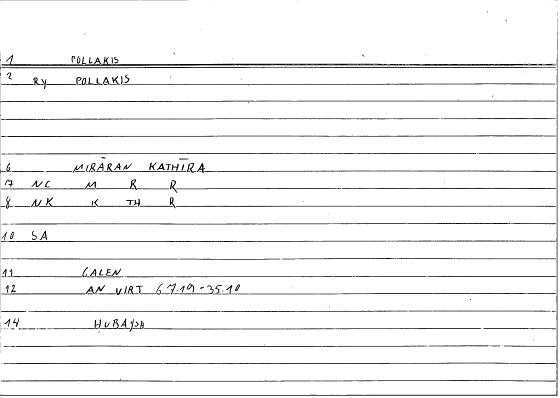 1 POLLAKIS
2 Ry POLLAKIS
6 MIRĀRAN KATHĪRA
7 NC M R R
8 NK K TH R
10 SA
11 GALEN
12 AN VIRT 67.19-35.10
14 HUBAYSH